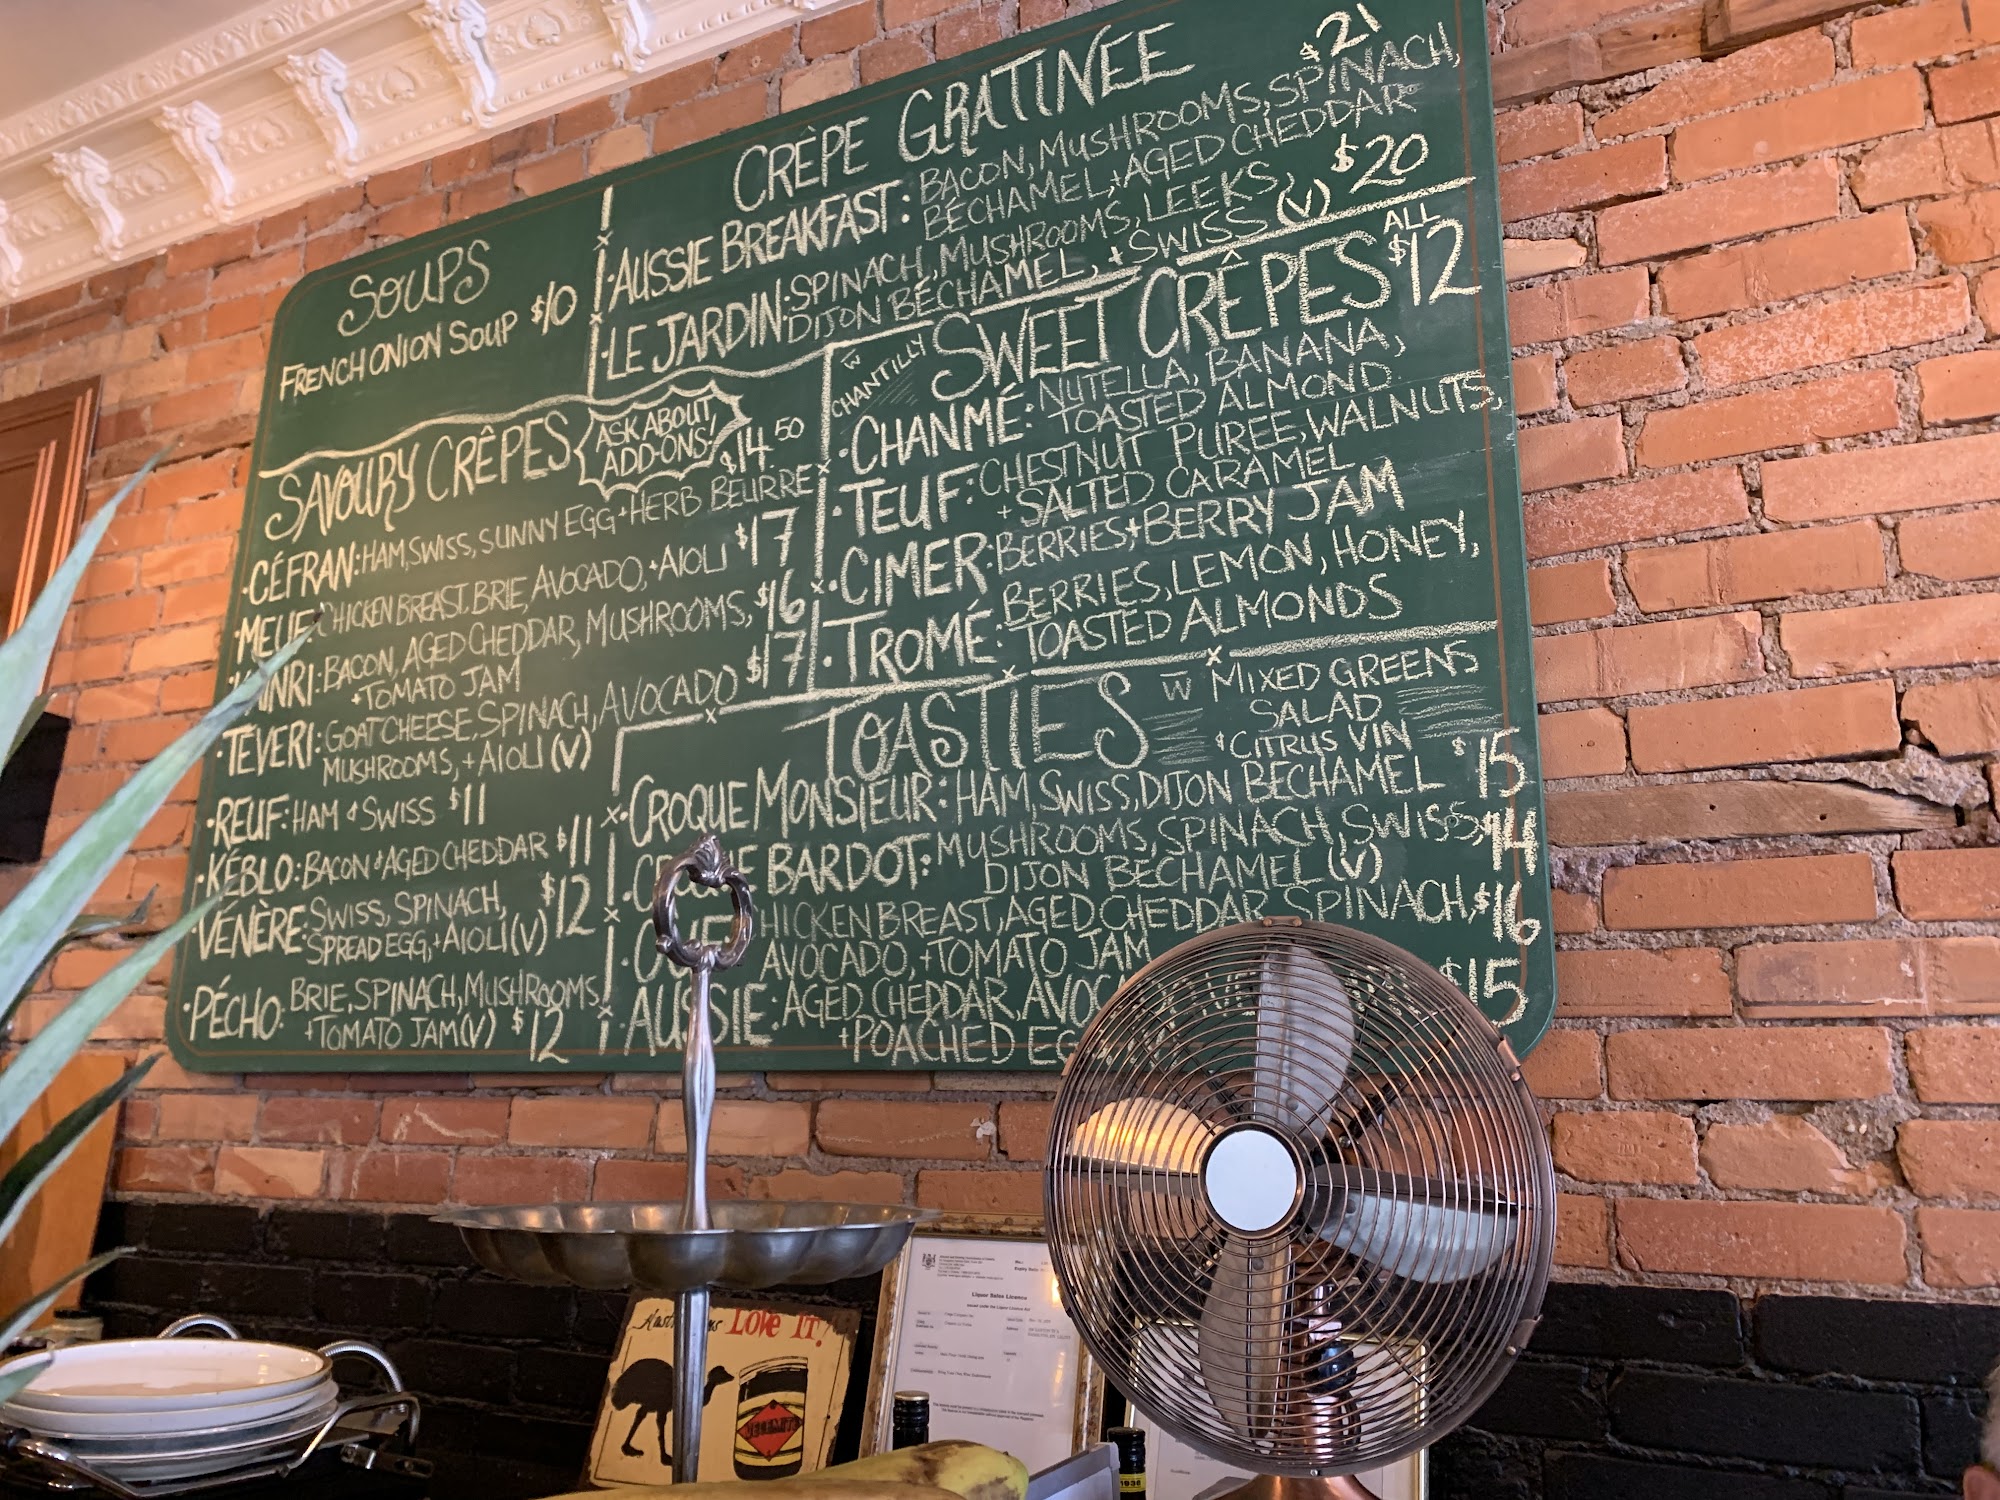 SOUPS
FRENCH ONION SOUP $10
CRÊPE GRATINEE
$21
·AUSSIE BREAKFAST: BACON, MUSHROOMS, SPINACH,
BÉCHAMEL, + AGED CHEDDAR
·LE JARDIN: SPINACH, MUSHROOMS, LEEKS, $20
DIJON BÉCHAMEL, + SWISS (V)
SAVOURY CRÊPES
ASK ABOUT
ADD-ONS!
$14.50
·CÉFRAN: HAM, SWISS, SUNNY EGG + HERB BEURRE
CHICKEN BREAST, BRIE, AVOCADO, + AIOLI $17
BACON, AGED CHEDDAR, MUSHROOMS, $16
+ TOMATO JAM
·TÉVERI: GOAT CHEESE, SPINACH, AVOCADO $17
MUSHROOMS, + AIOLI (V)
·REUF: HAM & SWISS $11
·KÉBLO: BACON & AGED CHEDDAR $11
·VÉNÈRE: SWISS, SPINACH, $12
SPREAD EGG, + AIOLI (V)
·PÉCHO: BRIE, SPINACH, MUSHROOMS
+ TOMATO JAM (V) $12
W
CHANTILLY
SWEET CRÊPES
ALL
$12
·CHANMÉ: NUTELLA, BANANA,
TOASTED ALMOND
·TEUF: CHESTNUT PUREE, WALNUTS,
+ SALTED CARAMEL
·CIMER: BERRIES + BERRY JAM
·TROMÉ: BERRIES, LEMON, HONEY,
TOASTED ALMONDS
TOASTIES
W MIXED GREENS
SALAD
& CITRUS VIN
·CROQUE MONSIEUR: HAM, SWISS, DIJON BECHAMEL $15
BARDOT: MUSHROOMS, SPINACH, SWISS, $14
DIJON BECHAMEL (V)
CHICKEN BREAST, AGED CHEDDAR, SPINACH, $16
AVOCADO, + TOMATO JAM
·AUSSIE: AGED CHEDDAR, $15
+ POACHED
LOVE IT!
Liquor Sales Licence